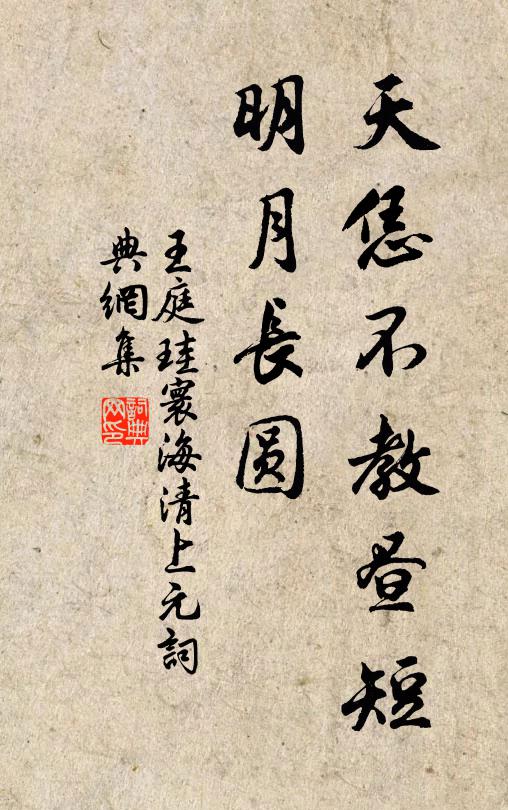 天恁不教昼短
明月長圓
王庭珪寰海清上元詞
典網集
詞典
网印